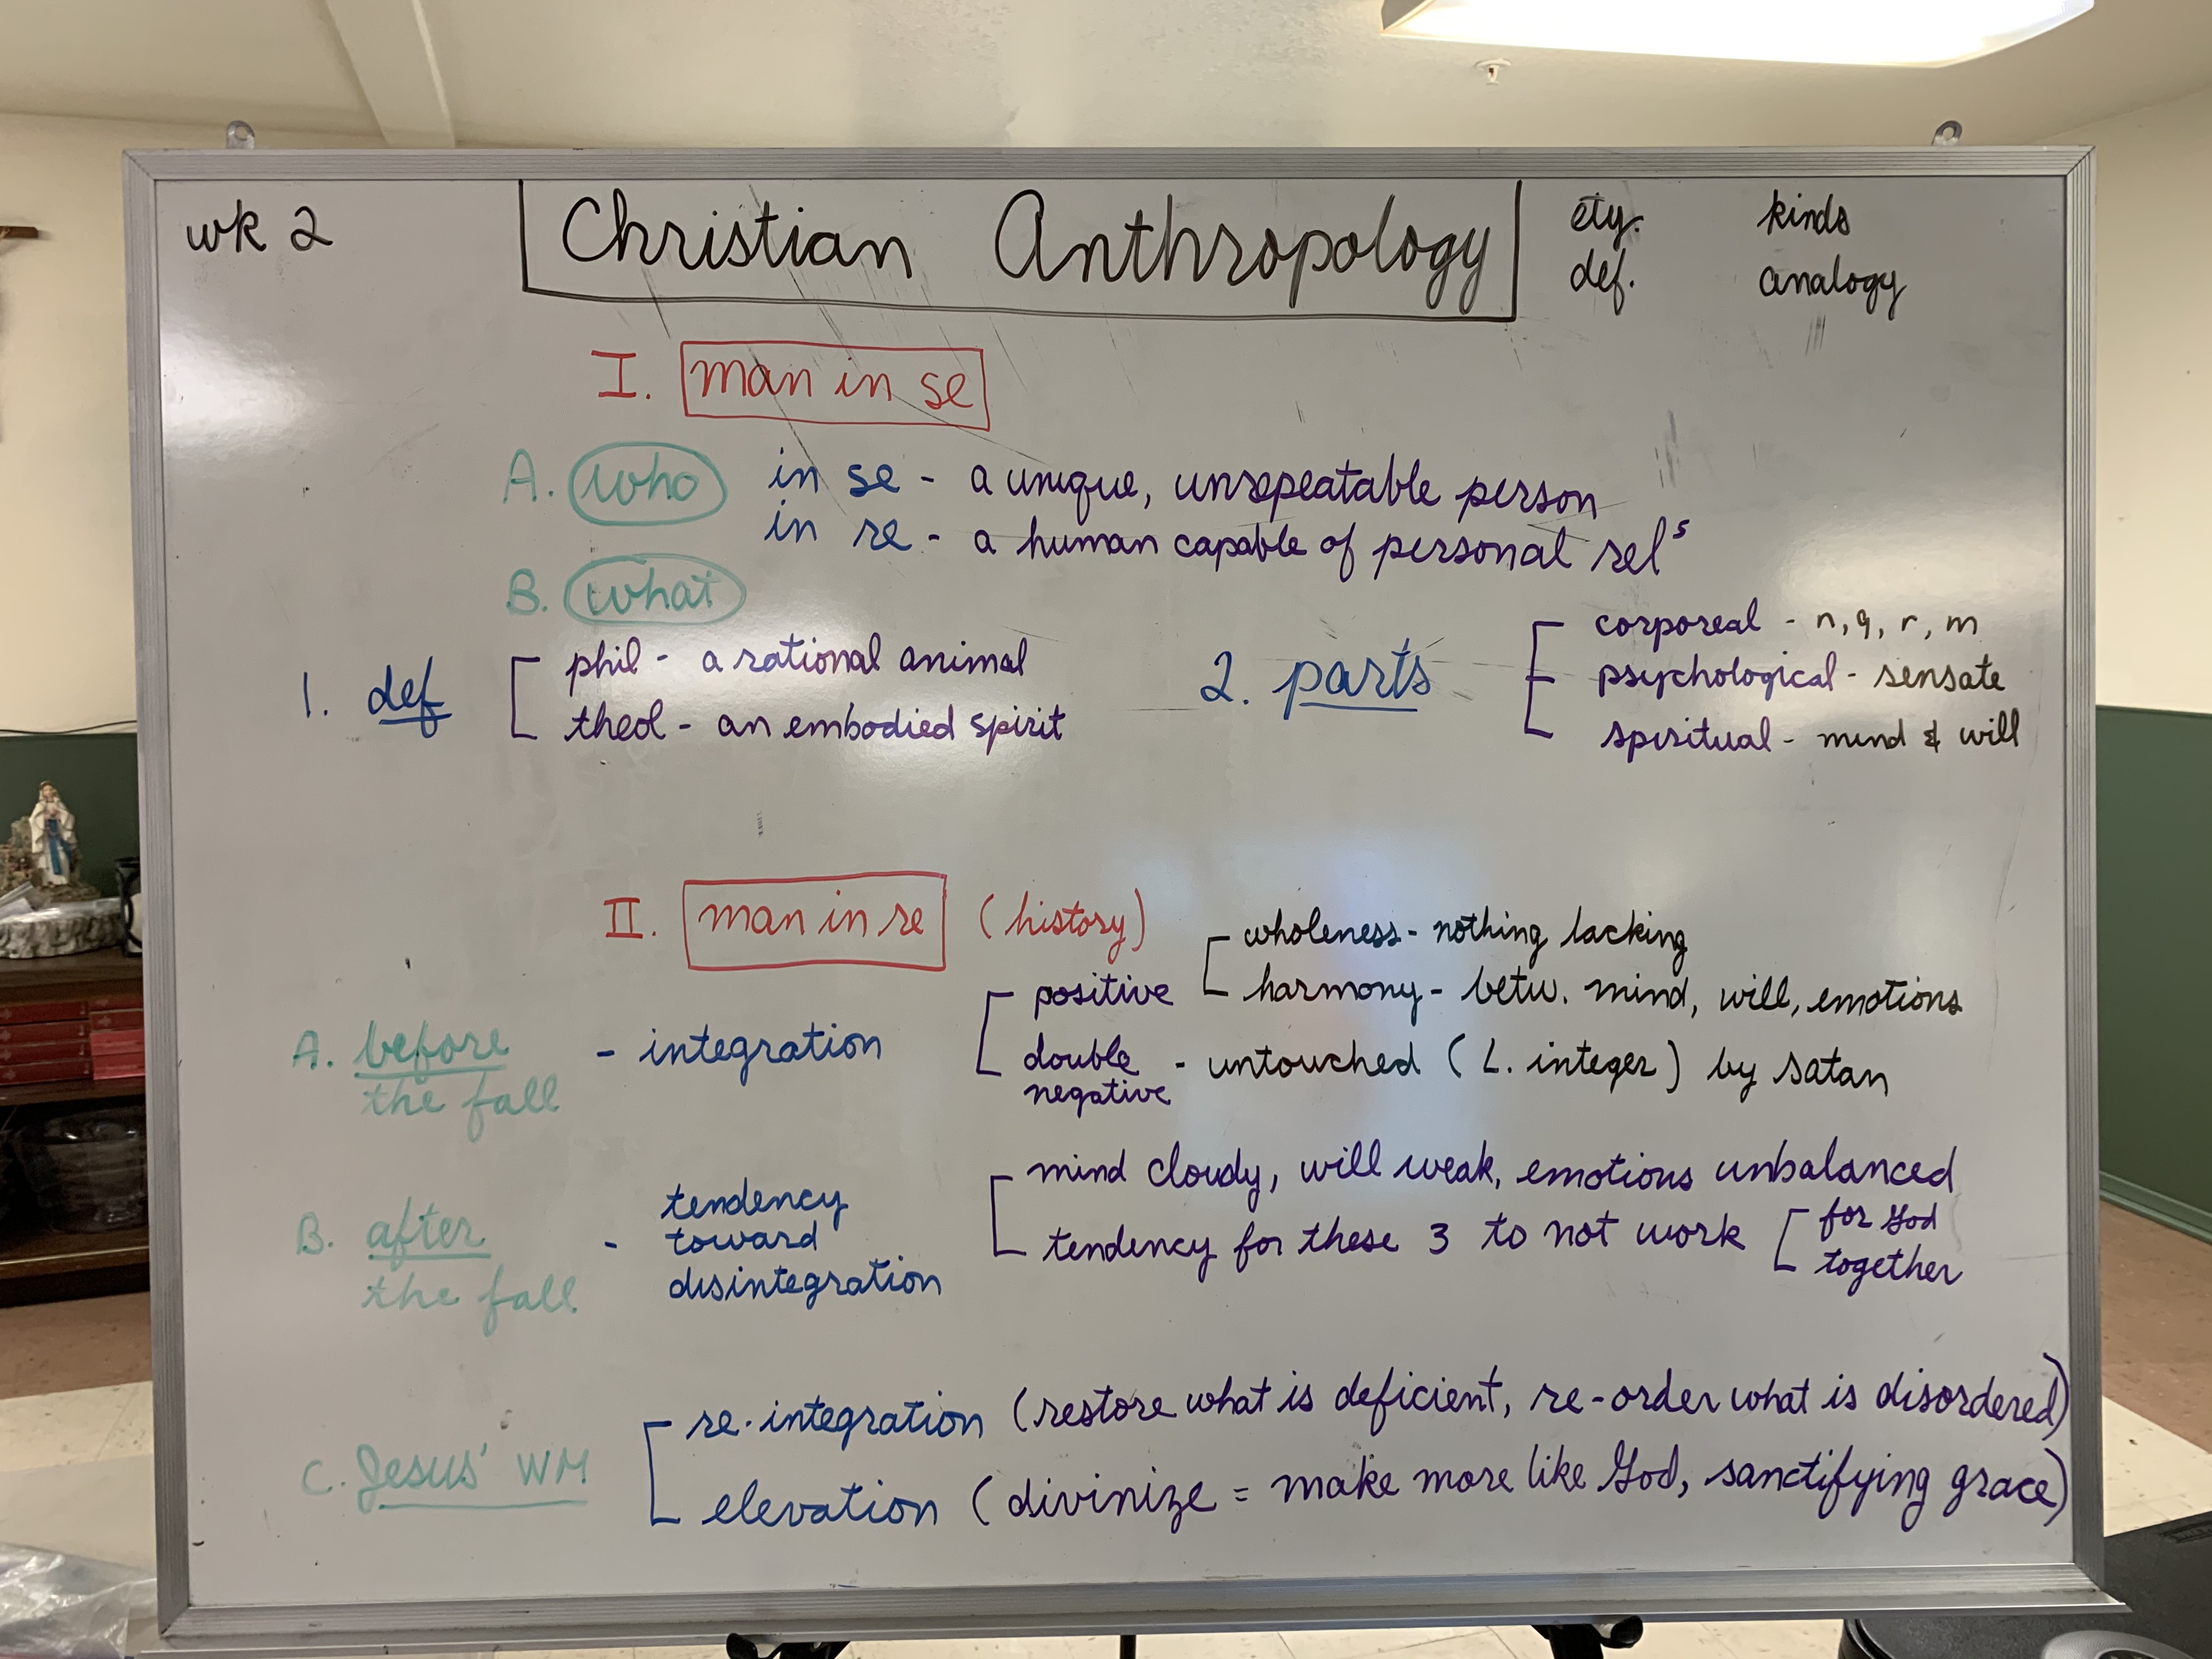 wk 2
Christian Anthropology
ety. kinds
def. analogy
I. man in se
A. who in se - a unique, unrepeatable person
in re - a human capable of personal relˢ
B. what
1. def
phil - a rational animal
theol - an embodied spirit
2. parts
corporeal - n, g, r, m
psychological - sensate
spiritual - mind & will
II. man in re (history)
A. before the fall - integration
positive
wholeness - nothing lacking
harmony - betw. mind, will, emotions
double negative - untouched (L. integer) by satan
B. after the fall - tendency toward disintegration
mind cloudy, will weak, emotions unbalanced
tendency for these 3 to not work
for God
together
C. Jesus' WM
re-integration (restore what is deficient, re-order what is disordered)
elevation (divinize = make more like God, sanctifying grace)